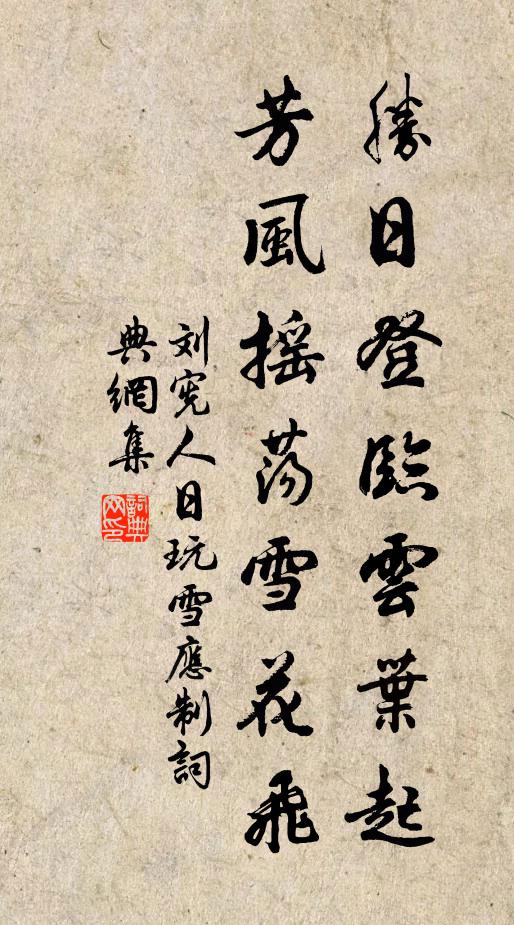 勝日登臨雲葉起
芳風摇蕩雪花飛
刘宪人日玩雪應制詞
典網集
詞典网印